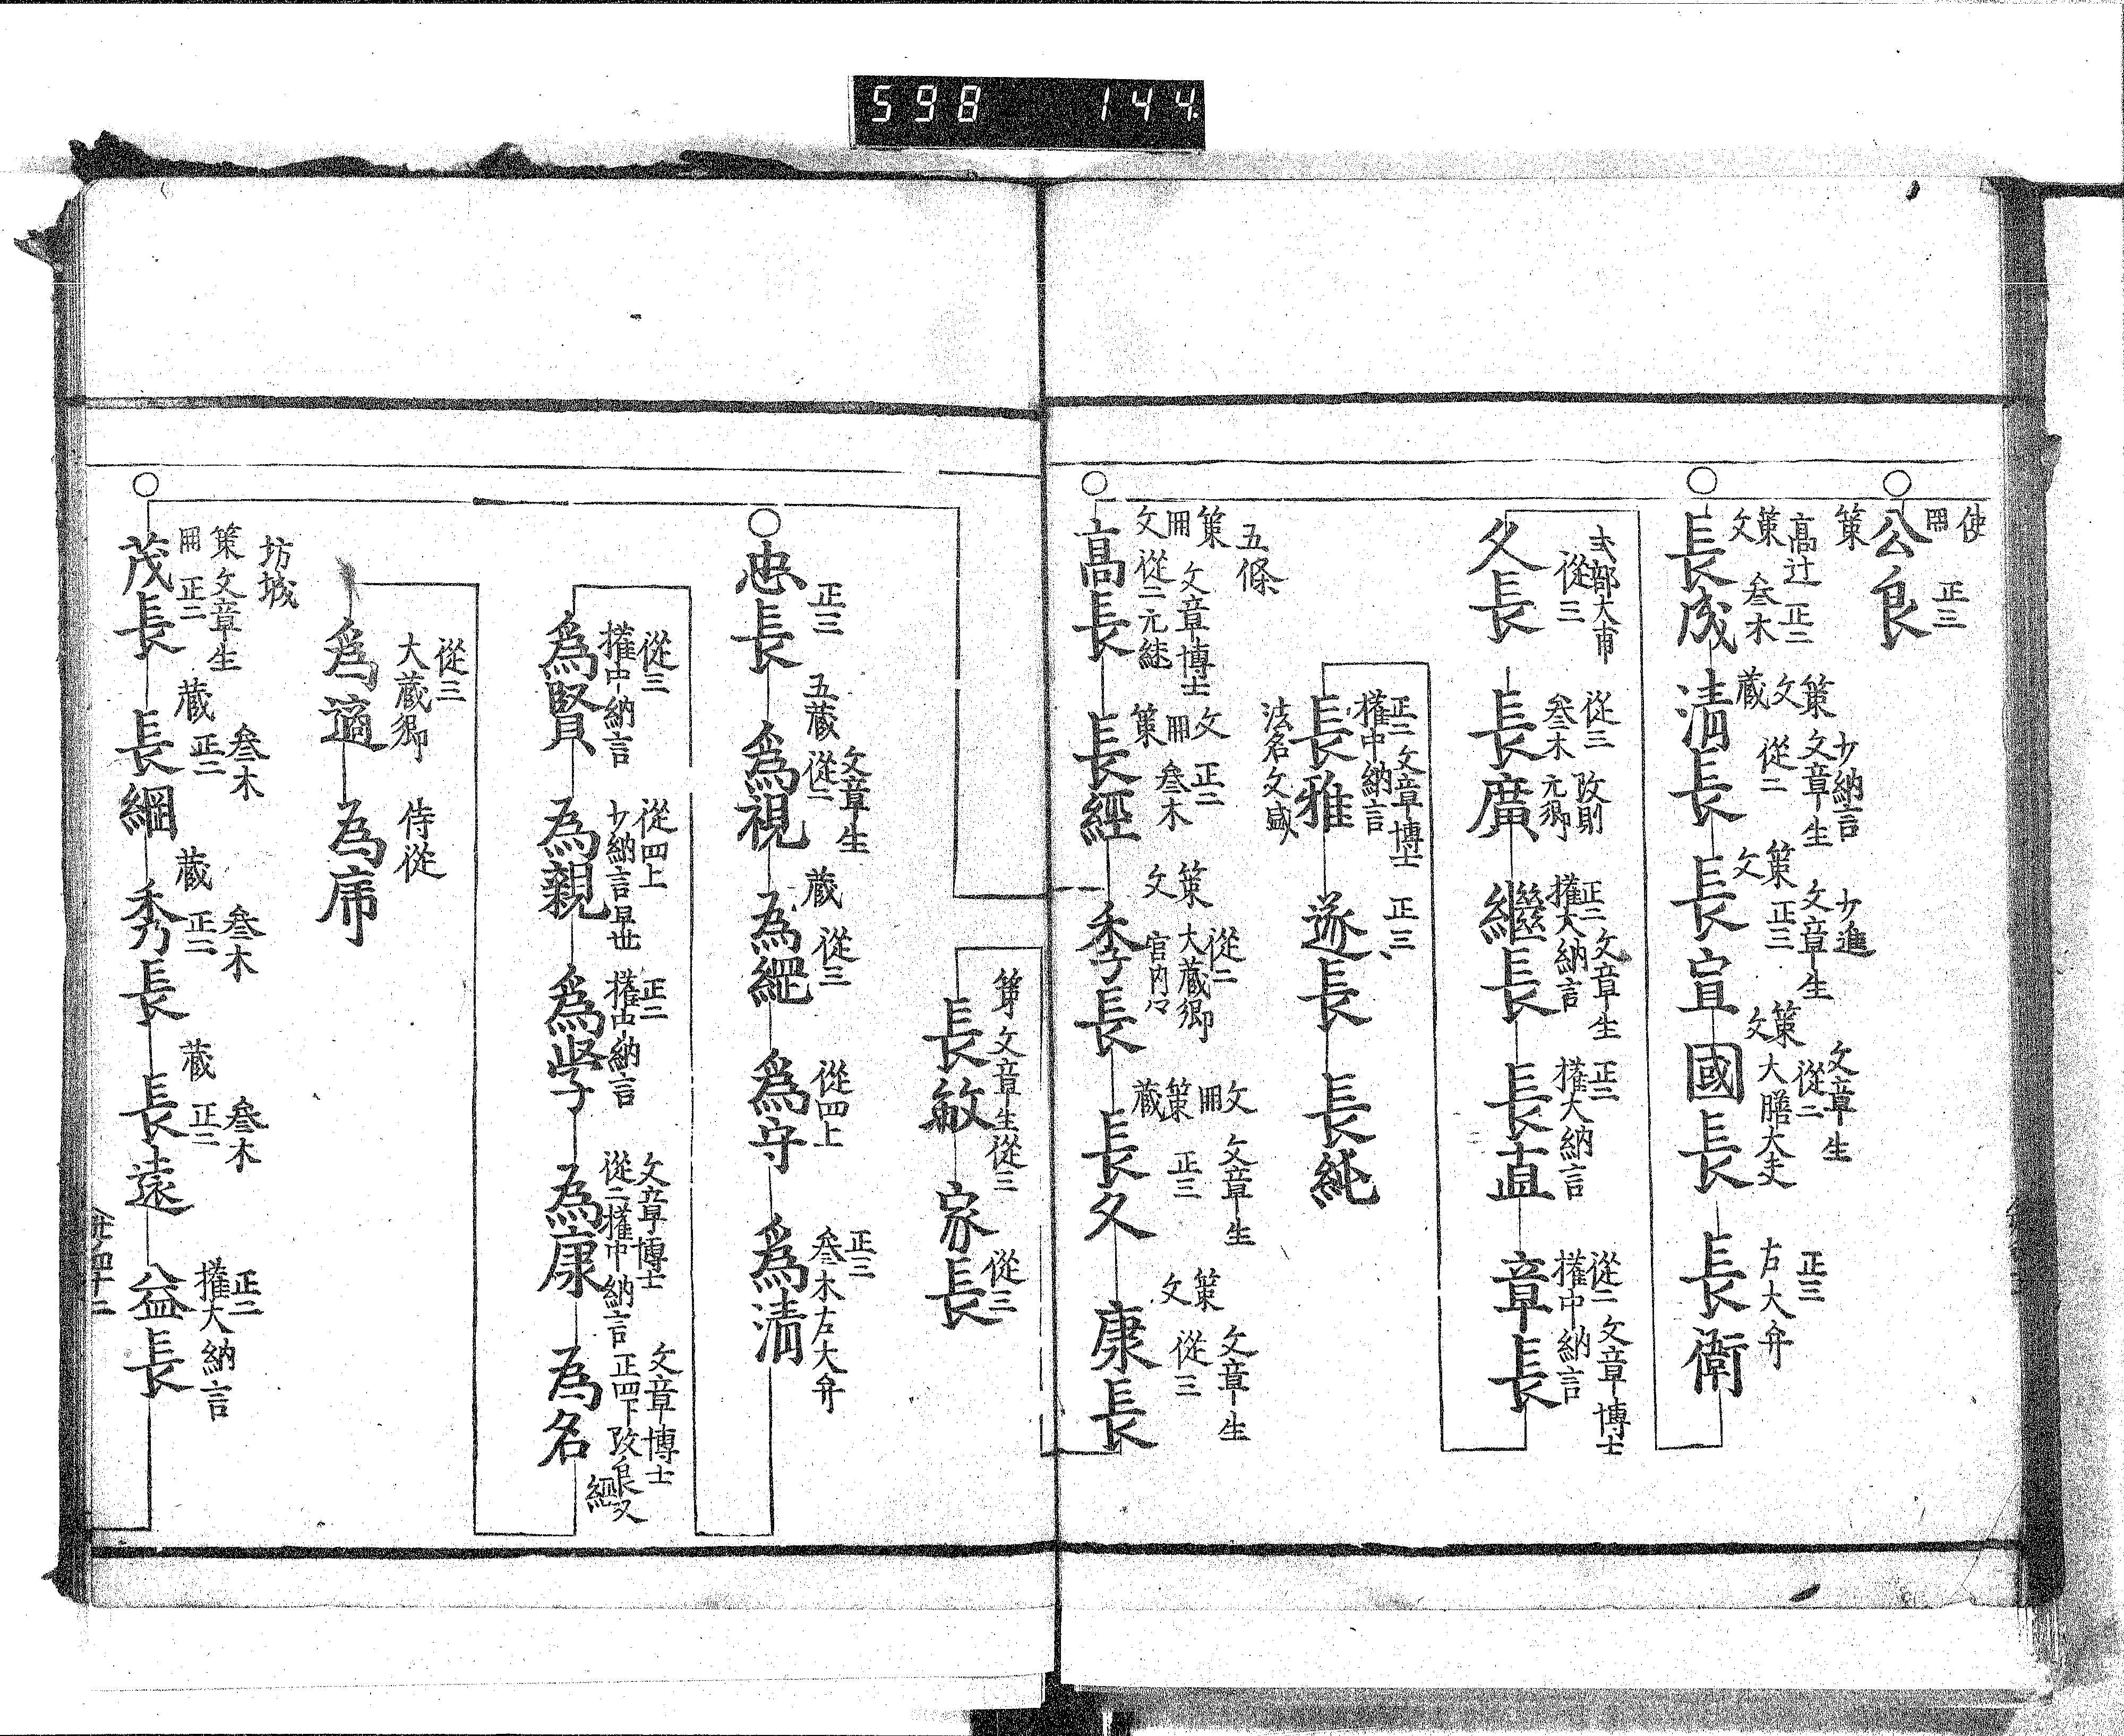 598 144
使
策
公良
正三
高辻 正二
策 文
参木
長成
少納言
策 文章生
文 蔵
從二
清長
少進
策 文章生
文
正三
長宣
文章生
策 從二
文 大膳大夫
國長
正三
右大弁
長衡
式部大甫
從三
久長
從三 改則
参木 元郷
長廣
正二 文章生
權大納言
繼長
正二
權大納言
長直
從二 文章博士
權中納言
章長
正二 文章博士
權中納言
長雅
正三
遂長
長純
法名文盛
五條
策 文章博士
文 從二
高長
文
策
正二
参木
長經
策 從二
文 大蔵卿
宮内
季長
文 文章生
策
蔵
正三
長久
策 文章生
文
從三
康長
文章生 從三
長敏
從三
家長
正三
忠長
五蔵 文章生
從二
為視
蔵
從三
為綱
從四上
為守
正三
参木左大弁
為清
從三
權中納言
為賢
從四上
少納言早世
為親
正二
權中納言
為学
文章博士
從二權中納言
為康
文章博士
正四下 改良又
為名
從三
大蔵卿
為適
侍從
為庸
坊城
策 文章生
正二
茂長
蔵 参木
正二
長綱
蔵 参木
正二
秀長
蔵 参木
正二
長遠
正二
權大納言
益長